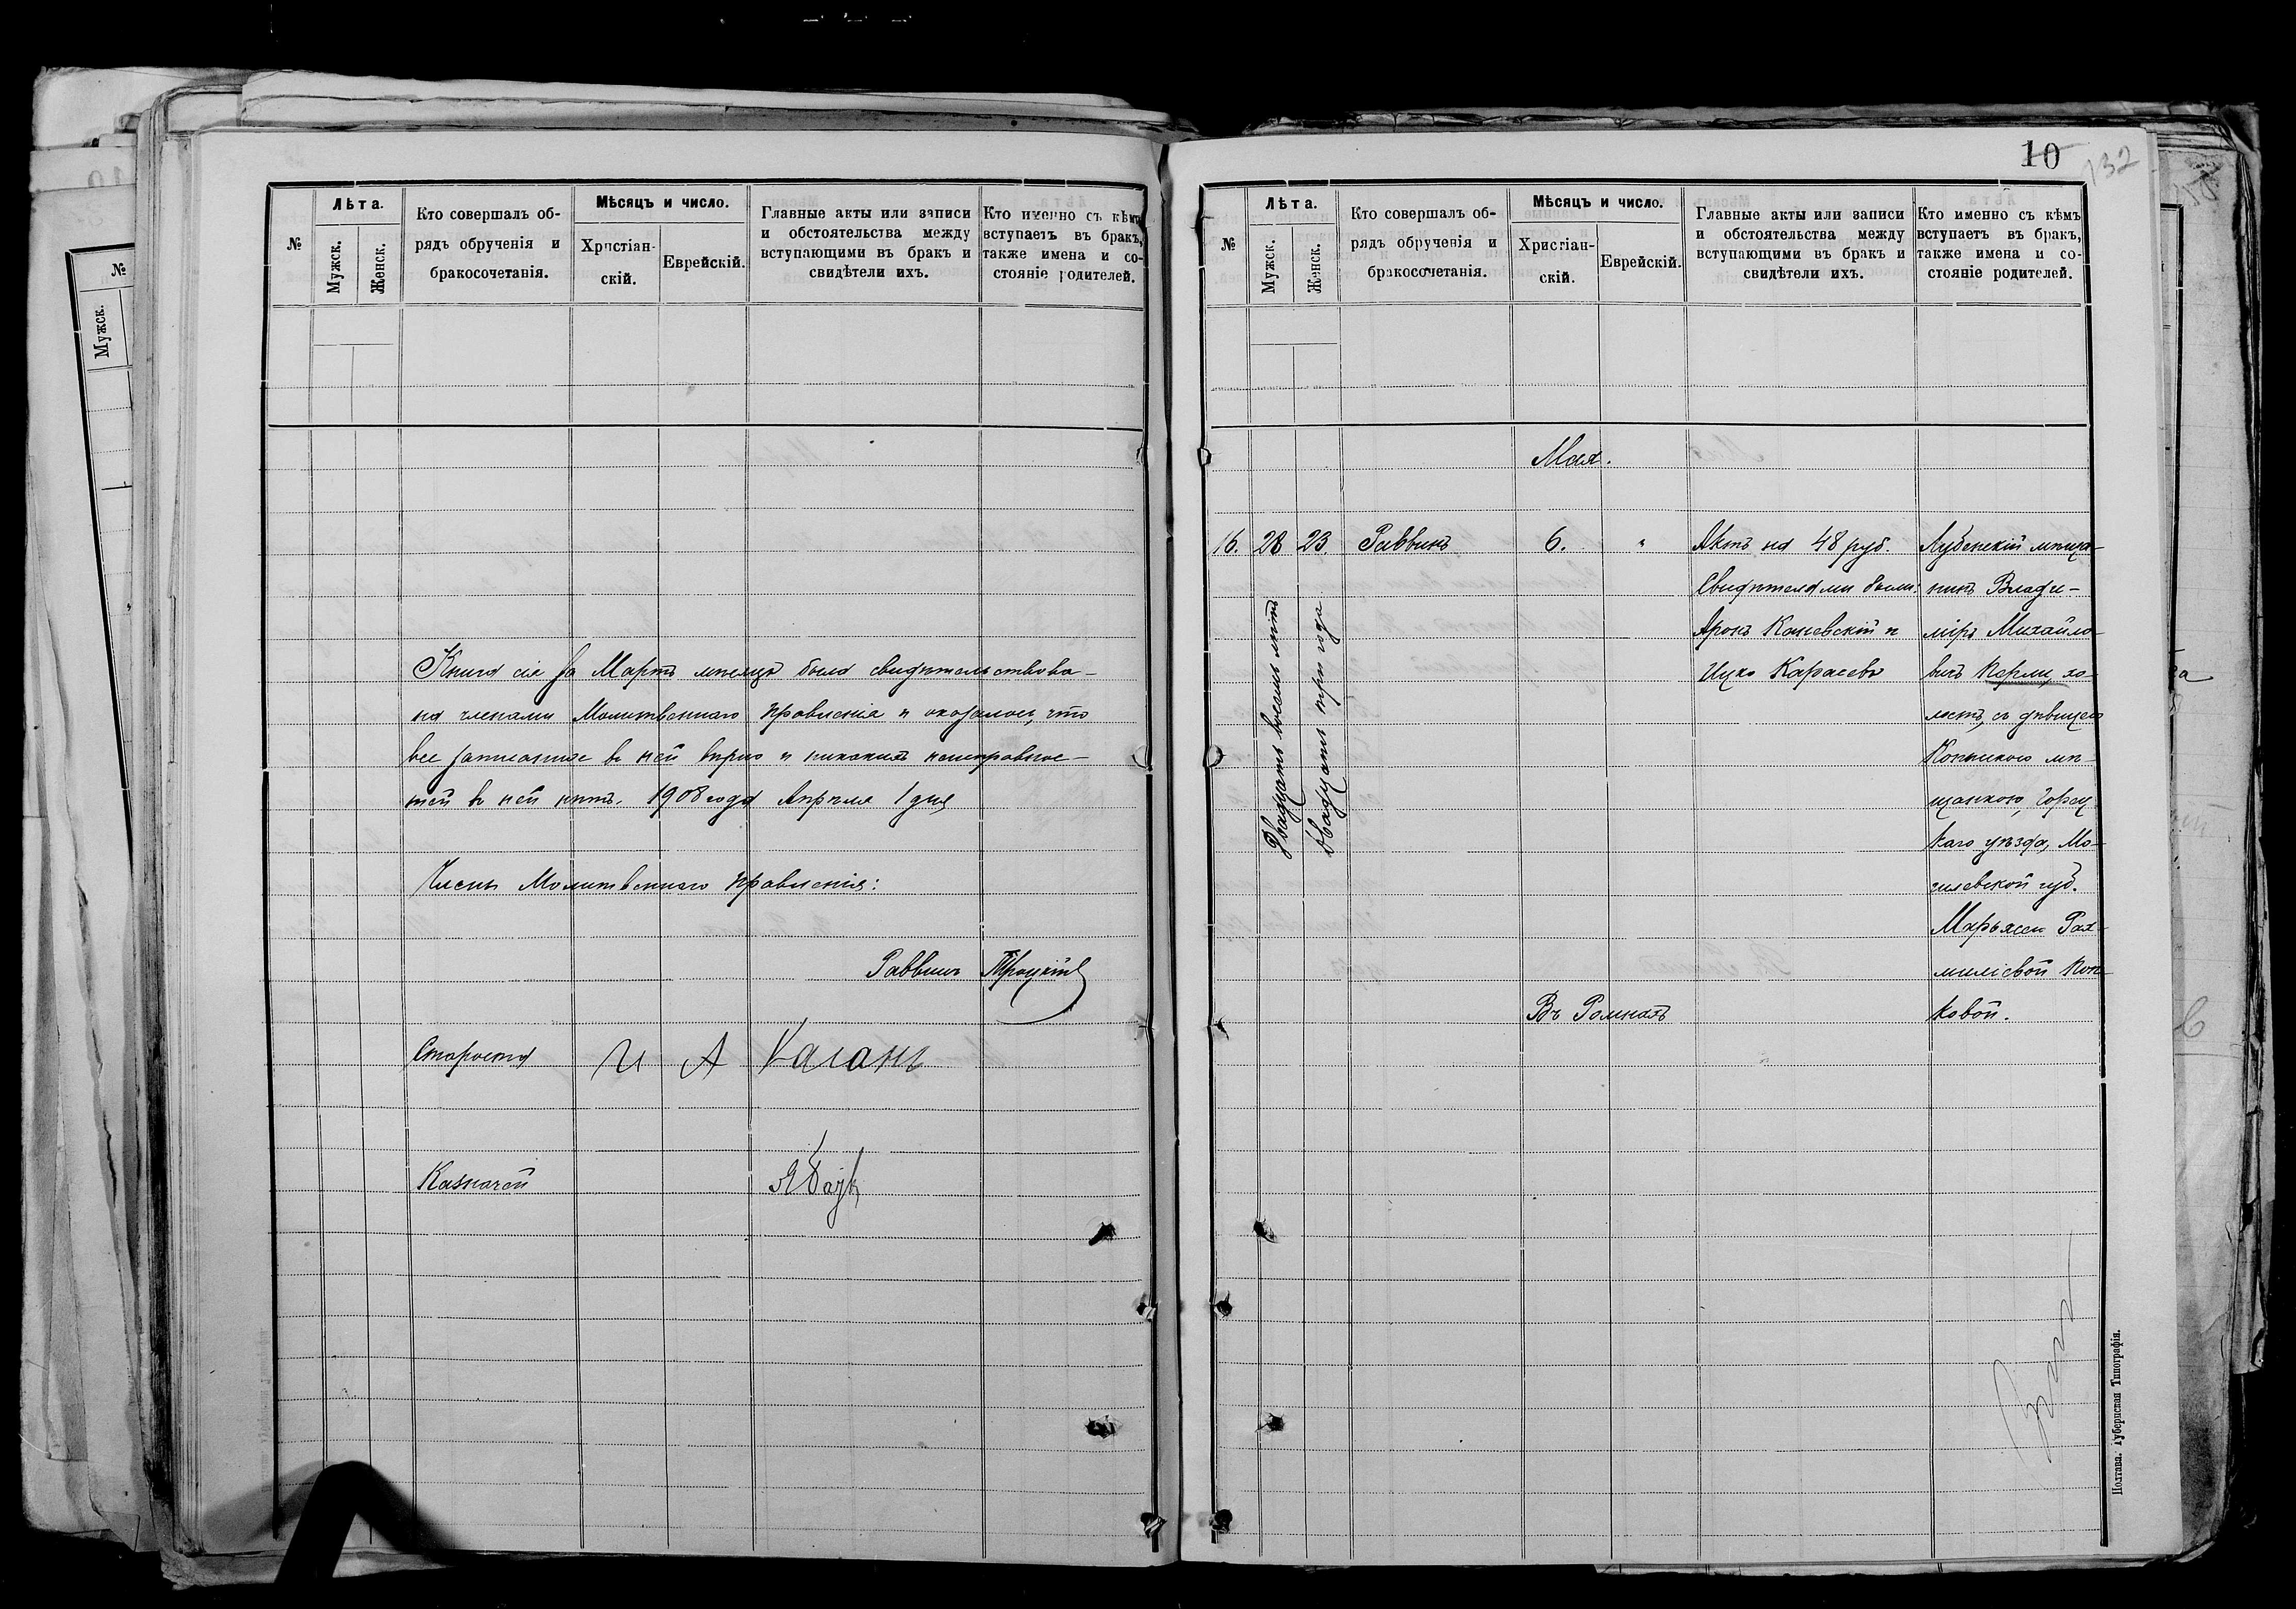 №
Лѣта.
Мужск.
Женск.
Кто совершалъ об-
рядъ обрученія и
бракосочетанія.
Мѣсяцъ и число.
Христіан-
скій.
Еврейскій.
Главные акты или записи
и обстоятельства между
вступающими въ бракъ и
свидѣтели ихъ.
Кто именно съ кѣмъ
вступаетъ въ бракъ,
также имена и со-
стояніе родителей.
Книга сія за Мартъ мѣсяцъ была свидѣтельствова-
на членами Молитвеннаго Правленія и оказалось, что
все записанное въ ней вѣрно и никакихъ неисправнос-
тей въ ней нѣтъ. 1908 года Апрѣля 1 дня
Члены Молитвеннаго Правленія:
Раввинъ Троцкій
Староста И А Каганъ
Казначей
№
Мужск.
10
132
№
Лѣта.
Мужск.
Женск.
Кто совершалъ об-
рядъ обрученія и
бракосочетанія.
Мѣсяцъ и число.
Христіан-
скій.
Еврейскій.
Главные акты или записи
и обстоятельства между
вступающими въ бракъ и
свидѣтели ихъ.
Кто именно съ кѣмъ
вступаетъ въ бракъ,
также имена и со-
стояніе родителей.
Мая.
16. 28 23. Раввинъ 6. "
Двадцать восемь лѣтъ
двадцать три года
Актъ на 48 руб.
Свидѣтелями были:
Аронъ Каневскій и
Ицко Карасевъ
Лубенскій мѣща-
нинъ Влади-
міръ Михайло-
вичъ Перли, хо-
лостъ, съ дѣвицею
Копыскою мѣ-
щанкою, Горец
каго уѣзда, Мо-
гилевской губ.
Марьясею Рах-
миліевой Коп-
ковой.
Въ Ромнахъ
Полтава. Губернская Типографія.